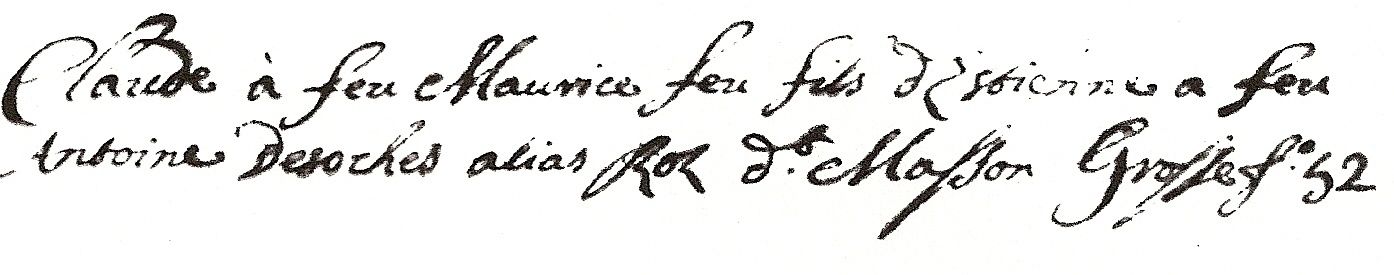 Claude à feu Maurice feu fils d'Estienne a feu
Antoine Desoches alias Roz d.t Masson Grosse f.o 52